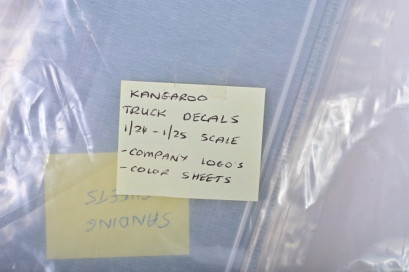 KANGAROO
TRUCK DECALS
1/24 - 1/25 SCALE
- COMPANY LOGO'S
- COLOR SHEETS
SANDING
SHEETS